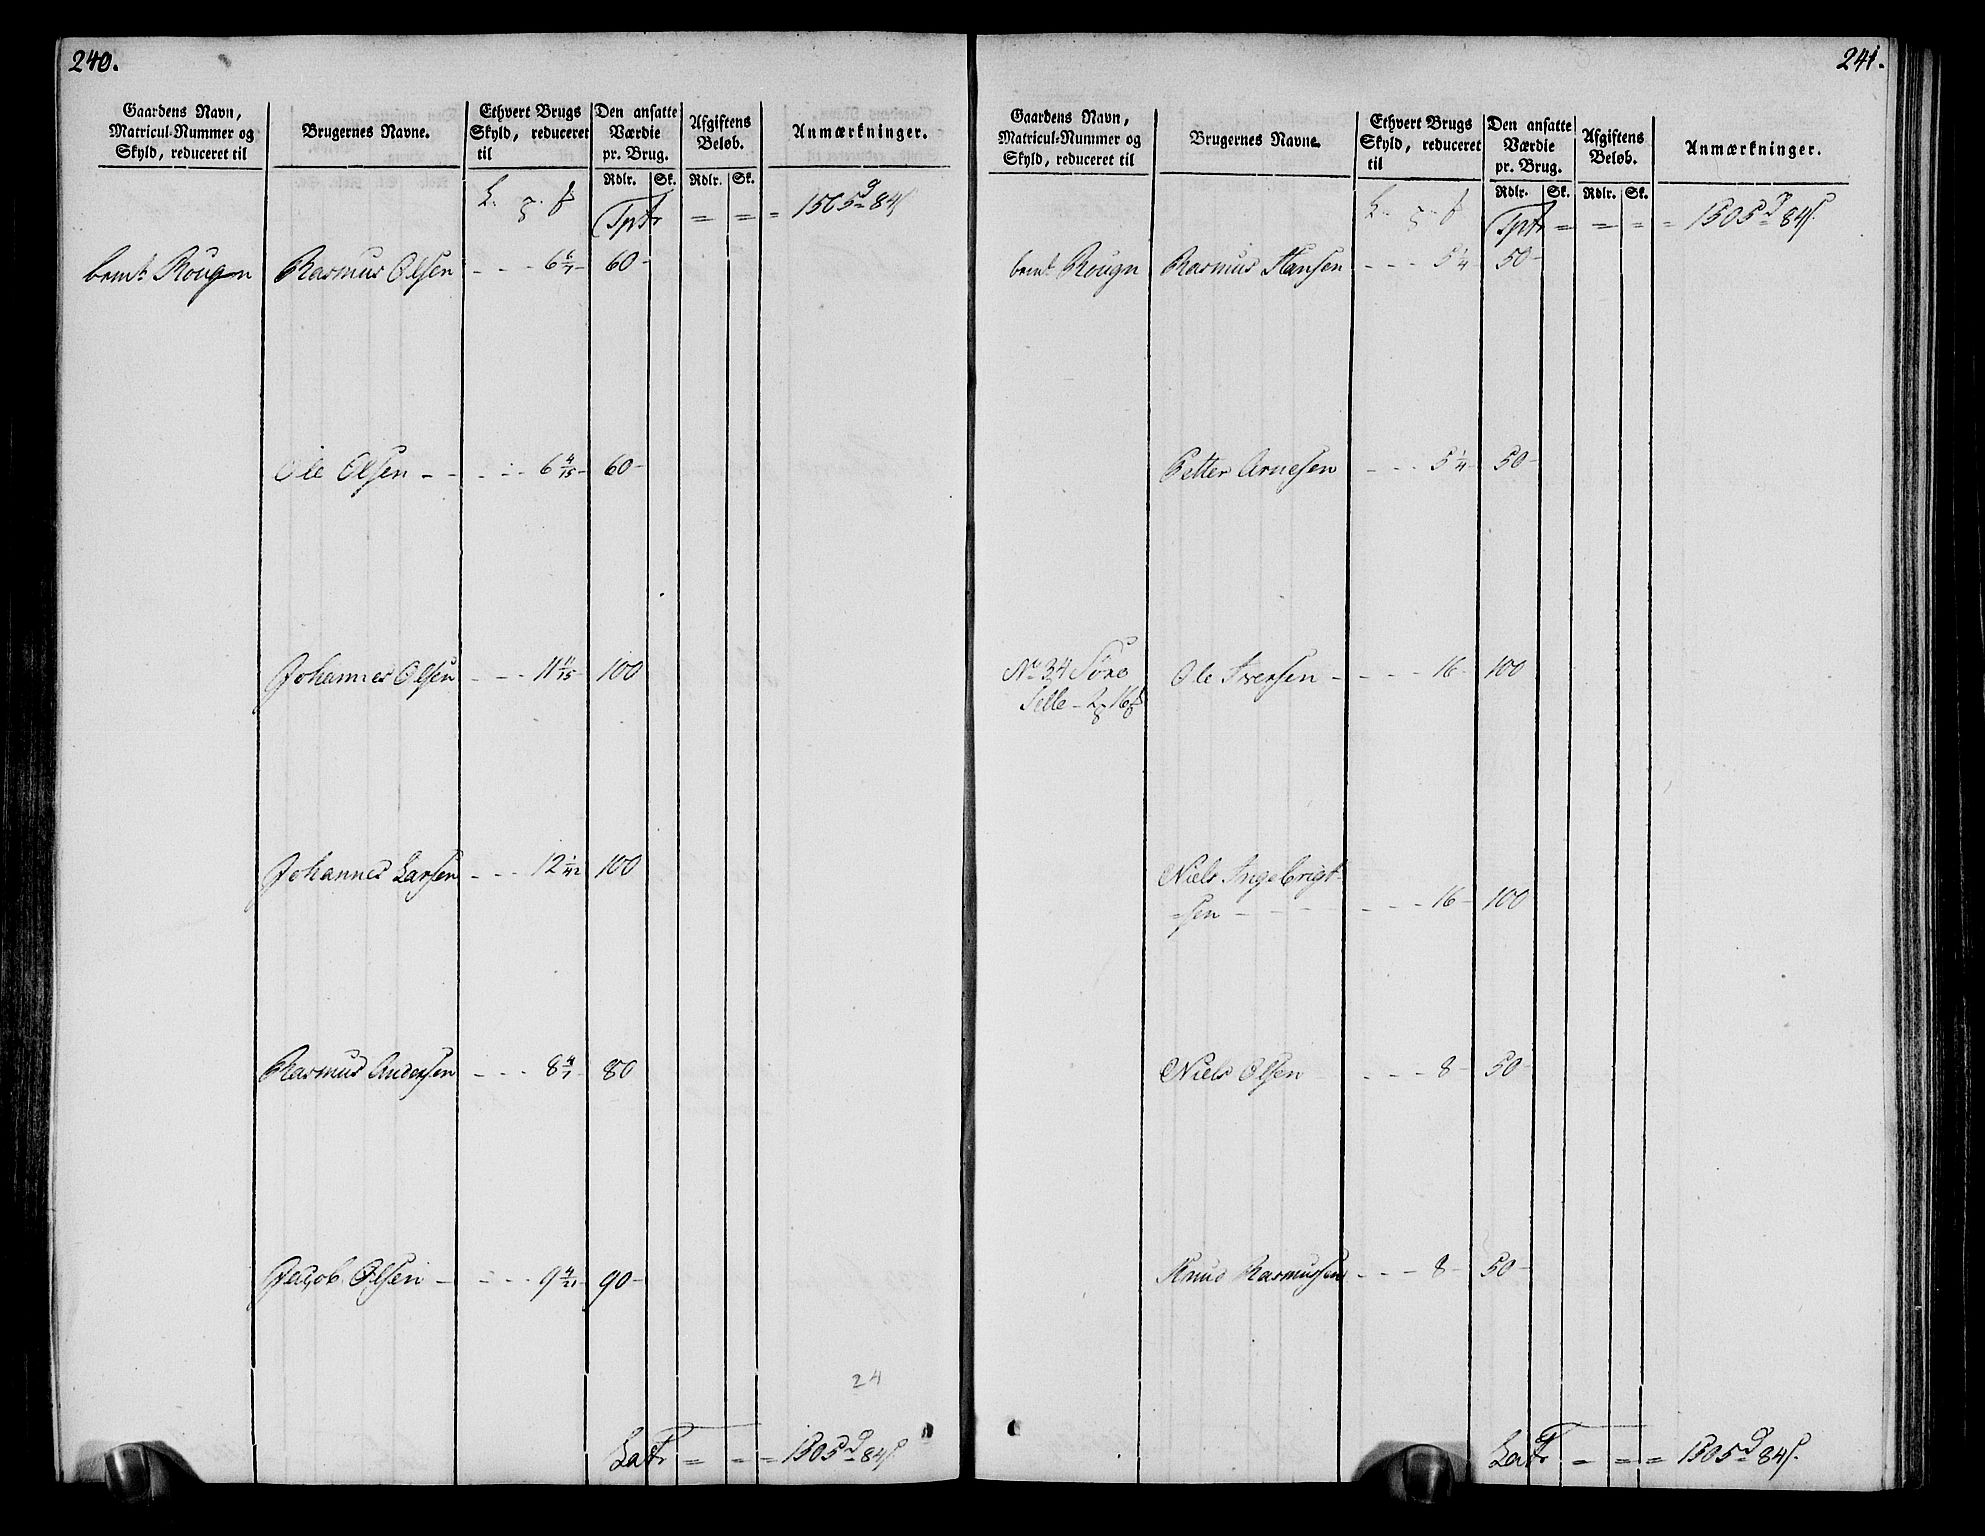 240.
Gaardens Navn, Matricul-Nummer og Skyld, reduceret til
Brugernes Navne.
Ethvert Brugs Skyld, reduceret til
Den ansatte Værdie pr. Brug.
Afgiftens Beløb.
Anmærkninger.
Rdlr. Sk. Rdlr. Sk.
Tptr = = = 1505 84
bemt Rougn Rasmus Olsen - - - 6 6/7 - 60 -
Ole Olsen - - - - - 6 4/15 - 60 -
Johannes Olsen - - - 11 11/15 100
Johannes Larsen - - - 12 1/42 100
Rasmus Andersen - - - 8 4/7 - 80
Jacob Olsen - - - - 9 4/21 90 -
24
Latr = = = 1505 84
241.
Gaardens Navn, Matricul-Nummer og Skyld, reduceret til
Brugernes Navne.
Ethvert Brugs Skyld, reduceret til
Den ansatte Værdie pr. Brug.
Afgiftens Beløb.
Anmærkninger.
Rdlr. Sk. Rdlr. Sk.
Tptr = = = = 1505 84
bemt Rougn Rasmus Hansen - - - 5 1/4 50 -
Petter Arnesen - - - 5 1/4 50 -
No 34 Søre Ole Iversen - - - - 16 - 100
Selle - 2 16
Niels Ingebrigt-
=sen - - - - - - 16 - 100
Niels Olsen - - - 8 - 50 -
Knud Rasmussen - - - 8 - 50 -
Latr = = = 1505 84